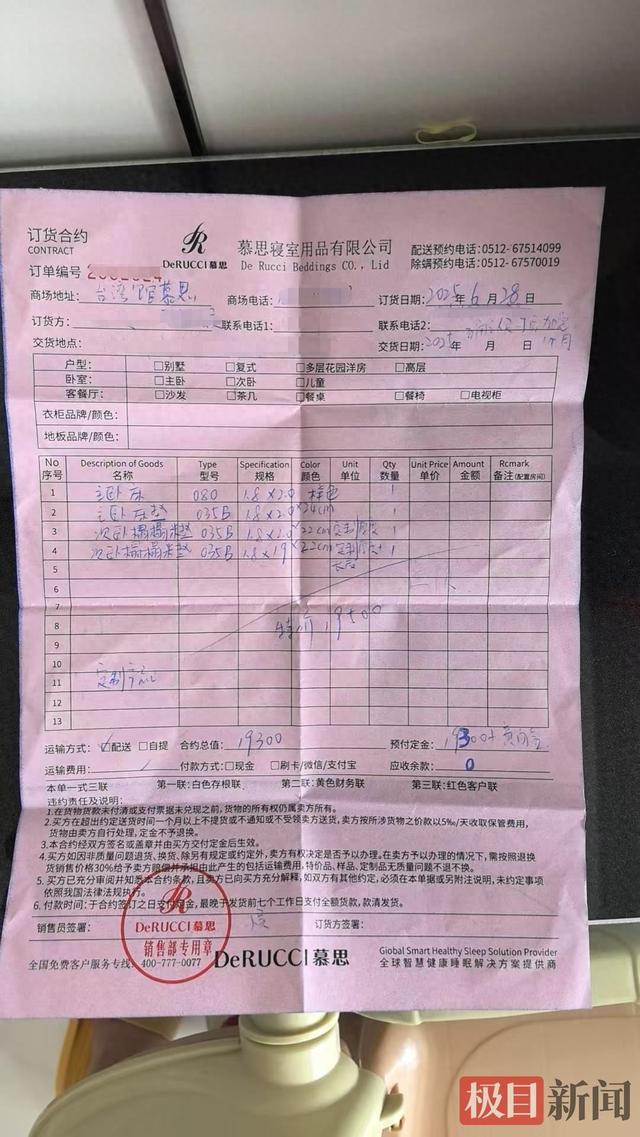 订货合约
CONTRACT
DeRUCCI 慕思
慕思寝室用品有限公司
De Rucci Beddings CO., Lid
配送预约电话:0512-67514099
除螨预约电话:0512-67570019
订单编号
商场地址: 台湾馆慕思 商场电话: 订货日期: 2025年6月28日
订货方: 联系电话1: 联系电话2:
交货地点: 交货日期: 2025年 月 日
户型: □别墅 □复式 □多层花园洋房 □高层
卧室: □主卧 □次卧 □儿童
客餐厅: □沙发 □茶几 □餐桌 □餐椅 □电视柜
衣柜品牌/颜色:
地板品牌/颜色:
No Description of Goods Type Specification Color Unit Qty Unit Price Amount Rcmark
序号 名称 型号 规格 颜色 单位 数量 单价 金额 备注(配置房间)
1 主卧床 080 1.8×2.0 样色 1
2 主卧床垫 035B 1.8×2.0×24cm 1
3 次卧榻榻米垫 035B 1.8×2.0×22cm 定制厚度 1
4 次卧榻榻米垫 035B 1.8×19×22cm 定制厚度+长度 1
5
6
7
8 特价 19500
9
10
11 定制
12
13
运输方式: ☑配送 □自提 合约总值: 19300 预付定金: 19300
运输费用: 付款方式:□现金 □刷卡/微信/支付宝 应收余款: 0
本单一式三联 第一联:白色存根联 第二联:黄色财务联 第三联:红色客户联
违约责任及说明:
1.在货物货款未付清或支付票据未兑现之前,货物的所有权仍属卖方所有。
2.买方在超出约定送货时间一个月以上不提货或不通知或不受领卖方送货,卖方按所涉货物之价款以5‰/天收取保管费用,
货物由卖方自行处理,定金不予退换。
3.本合约经双方签名或盖章并由买方交付定金后生效。
4.买方如因非质量问题退货、换货、除另有规定或约定外,卖方有权决定是否予以办理。在卖方予以办理的情况下,需按照退换
货销售价格30%给予卖方赔偿并承担由此产生的包括运输费用,特价品,样品,定制品无质量问题不退不换。
5.买方已充分审阅并知悉本合约条款,且卖方已向买方充分解释,如双方有其他约定,必须在本单据或另附说明,未约定事项
依照我国法律法规执行。
6.付款时间:于合约签订之日支付定金,最晚于发货前七个工作日支付全额货款,款清发货。
销售员签署: 订货方签署:
DeRUCCI 慕思
销售部专用章
全国免费客户服务专线:400-777-0077 DeRUCCI 慕思 Global Smart Healthy Sleep Solution Provider
全球智慧健康睡眠解决方案提供商
极目新闻